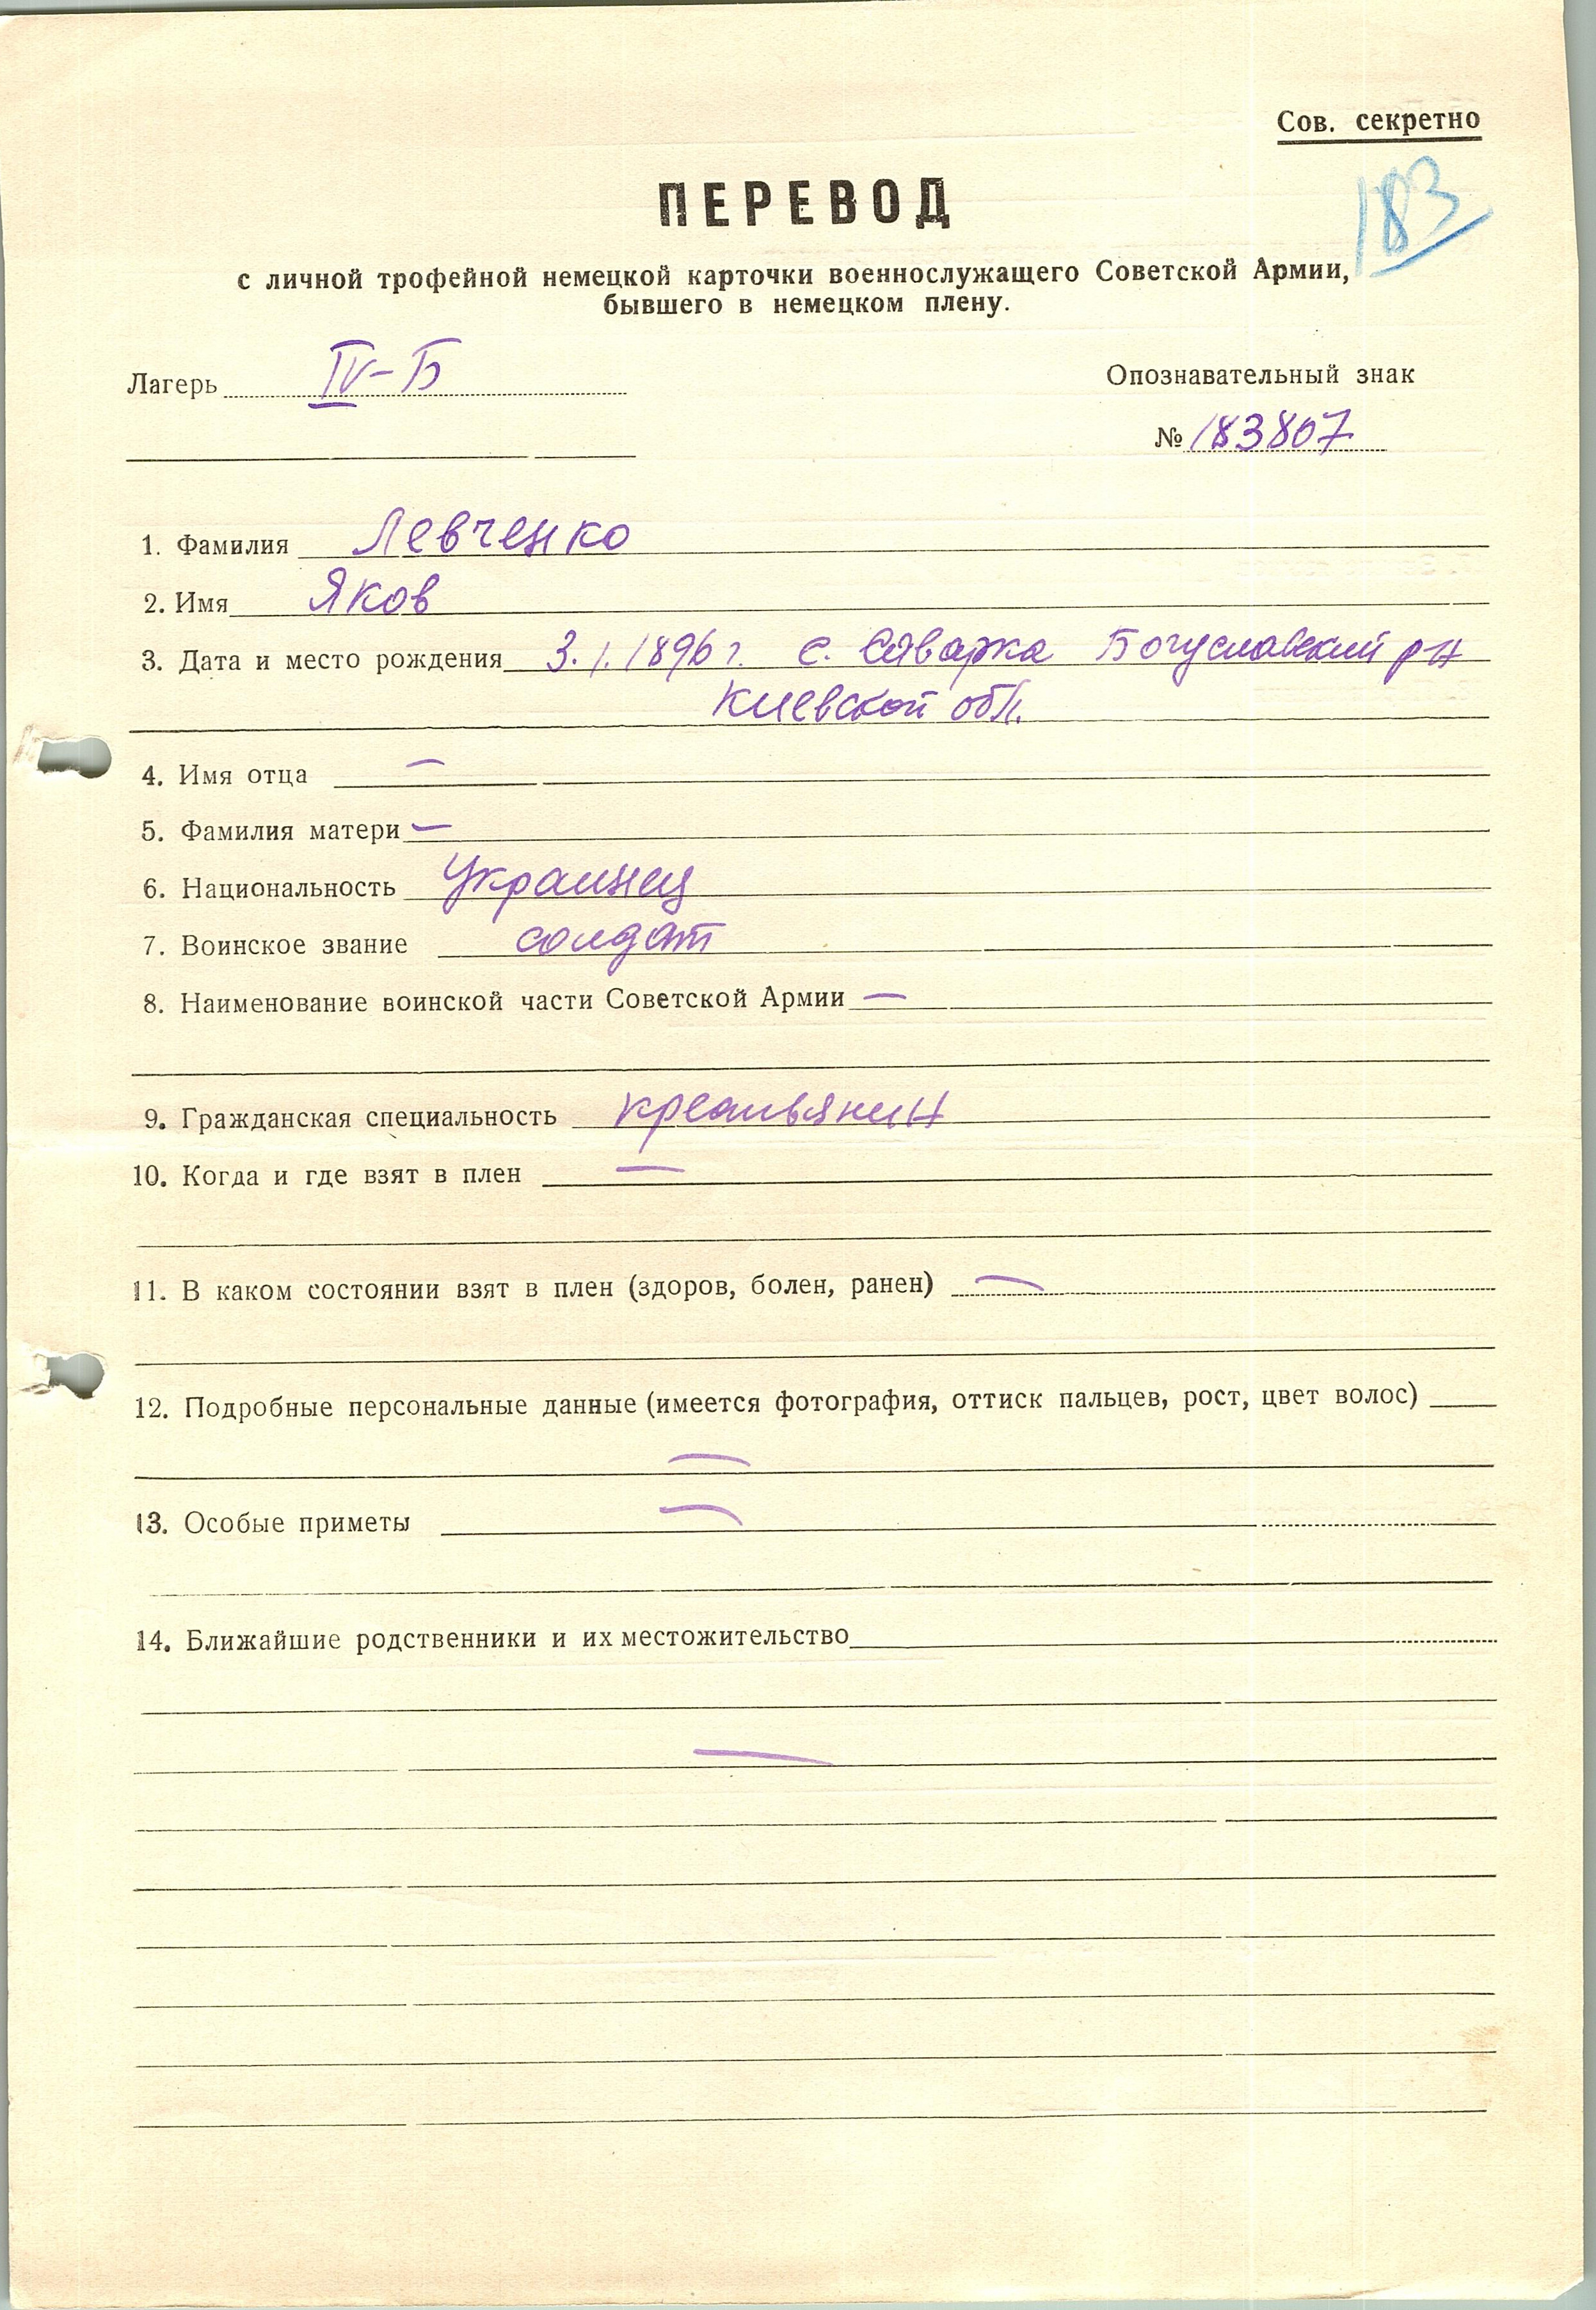 Сов. секретно
183
ПЕРЕВОД
с личной трофейной немецкой карточки военнослужащего Советской Армии,
бывшего в немецком плену.
Лагерь IV-Б
Опознавательный знак
№ 183807
1. Фамилия Левченко
2. Имя Яков
3. Дата и место рождения 3.1.1896 г. с. Сяварка Богуславский р-н
Киевской обл.
4. Имя отца —
5. Фамилия матери —
6. Национальность Украинец
7. Воинское звание солдат
8. Наименование воинской части Советской Армии —
9. Гражданская специальность крестьянин
10. Когда и где взят в плен —
11. В каком состоянии взят в плен (здоров, болен, ранен) —
12. Подробные персональные данные (имеется фотография, оттиск пальцев, рост, цвет волос)
—
13. Особые приметы —
14. Ближайшие родственники и их местожительство
—